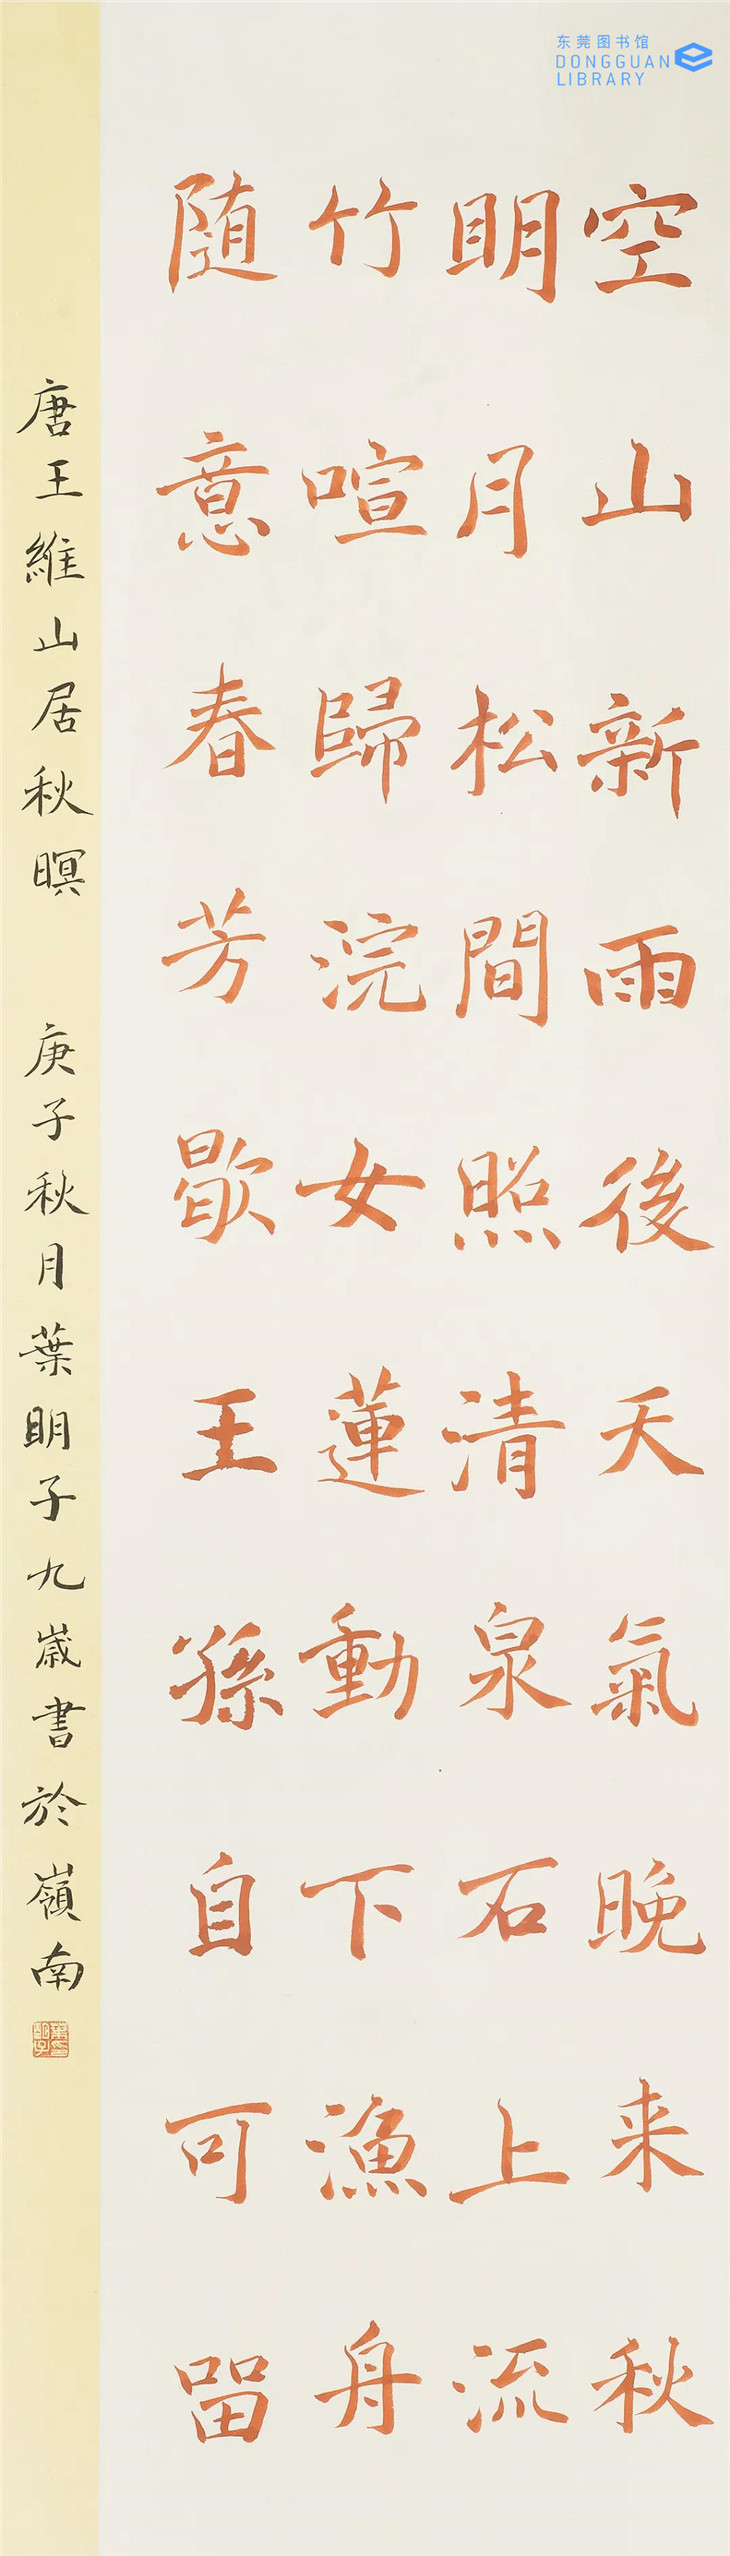 东莞图书馆
DONGGUAN
LIBRARY
空山新雨後天氣晚来秋
明月松間照清泉石上流
竹喧歸浣女蓮動下漁舟
随意春芳歇王孫自可留
唐王維山居秋暝 庚子秋月葉明子九歲書於嶺南
葉明子印